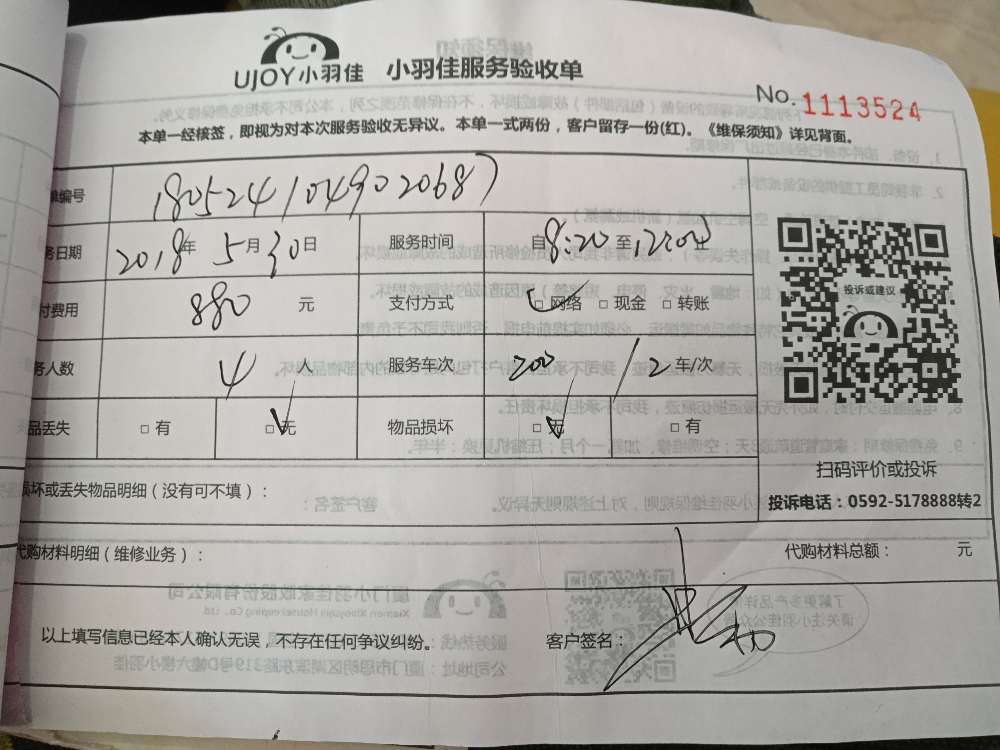 UJOY小羽佳 小羽佳服务验收单
No. 1113524
本单一经核签，即视为对本次服务验收无异议。本单一式两份，客户留存一份(红)。《维保须知》详见背面。
单编号 1805241049020687
务日期 2018年5月30日 服务时间 自8:20至12:00
付费用 880 元 支付方式 □网络 □现金 □转账
务人数 4 人 服务车次 200 / 2 车/次
品丢失 □有 □无 物品损坏 □无 □有
投诉或建议
扫码评价或投诉
投诉电话：0592-5178888转2
损坏或丢失物品明细（没有可不填）：
代购材料明细（维修业务）： 代购材料总额： 元
以上填写信息已经本人确认无误，不存在任何争议纠纷。 客户签名：